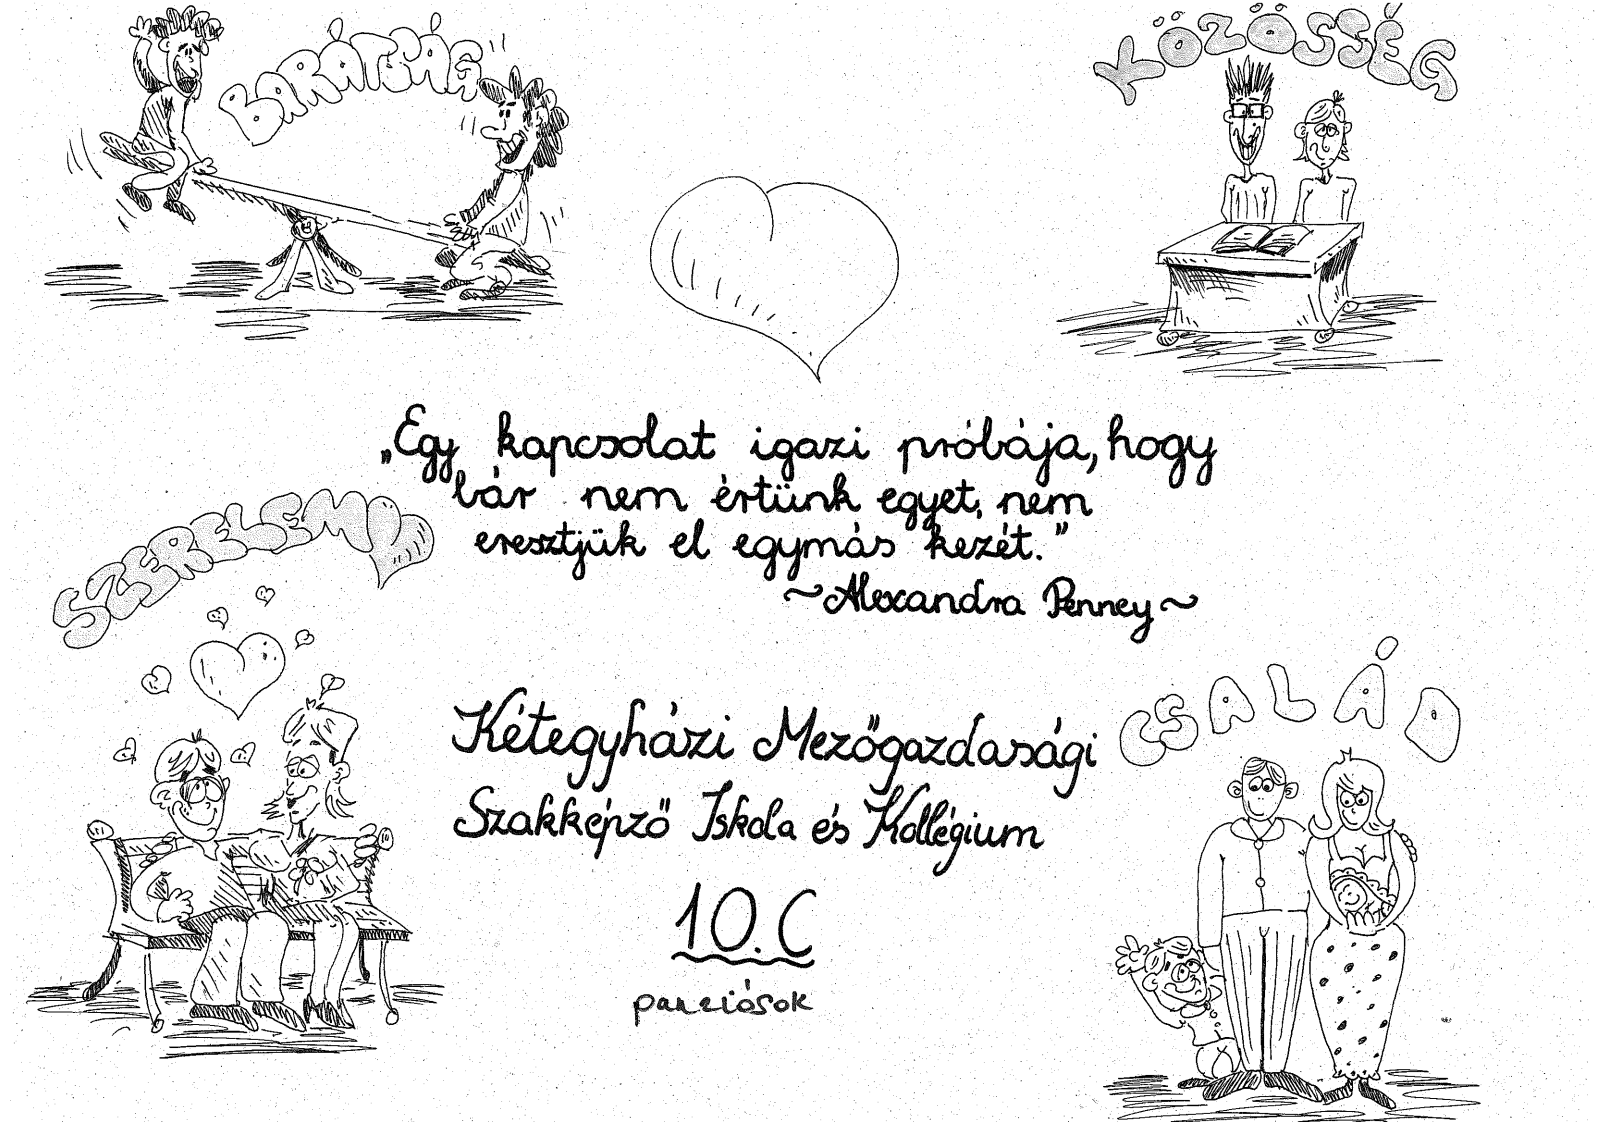 BARÁTSÁG
KÖZÖSSÉG
„Egy kapcsolat igazi próbája, hogy
bár nem értünk egyet, nem
eresztjük el egymás kezét.”
~Alexandra Penney~
SZERELEM
CSALÁD
Kétegyházi Mezőgazdasági
Szakképző Iskola és Kollégium
10.C
panziósok